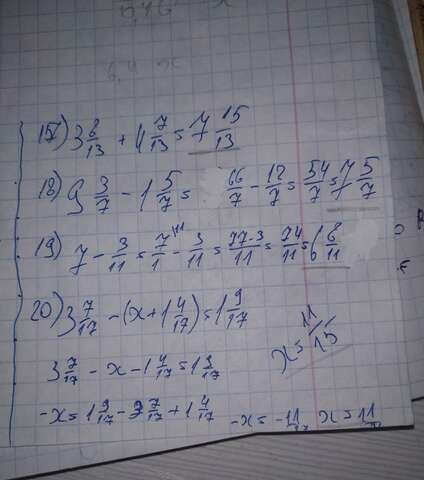 157) 3 8/13 + 4 7/13 = 7 15/13
18) 9 3/7 - 1 5/7 = 66/7 - 12/7 = 54/7 = 7 5/7
19) 7 - 3/11 = 7/1 - 3/11 = 77-3/11 = 74/11 = 6 8/11
20) 3 7/17 - (x + 1 4/17) = 1 9/17
x = 11/15
3 7/17 - x - 1 4/17 = 1 9/17
-x = 1 9/17 - 3 7/17 + 1 4/17 -x = -11 x = 11